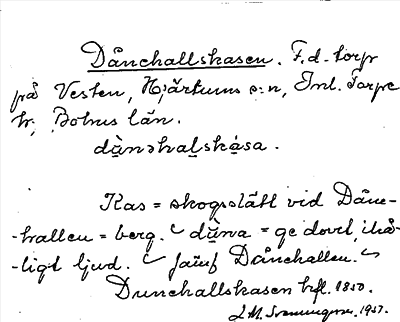 Dånehallskasen. F.d. torp
på Vesten, Hjärtums s:n, Inl. Torpe
hr, Bohus län.
då̤nəhal̤skása.
Kas = skogsslätt vid Dåne-
-hallen = berg. dåna = ge dovt, ihå-
-ligt ljud. Jämf Dånehallen.
Dunehallskasen hfl. 1850.
1937.